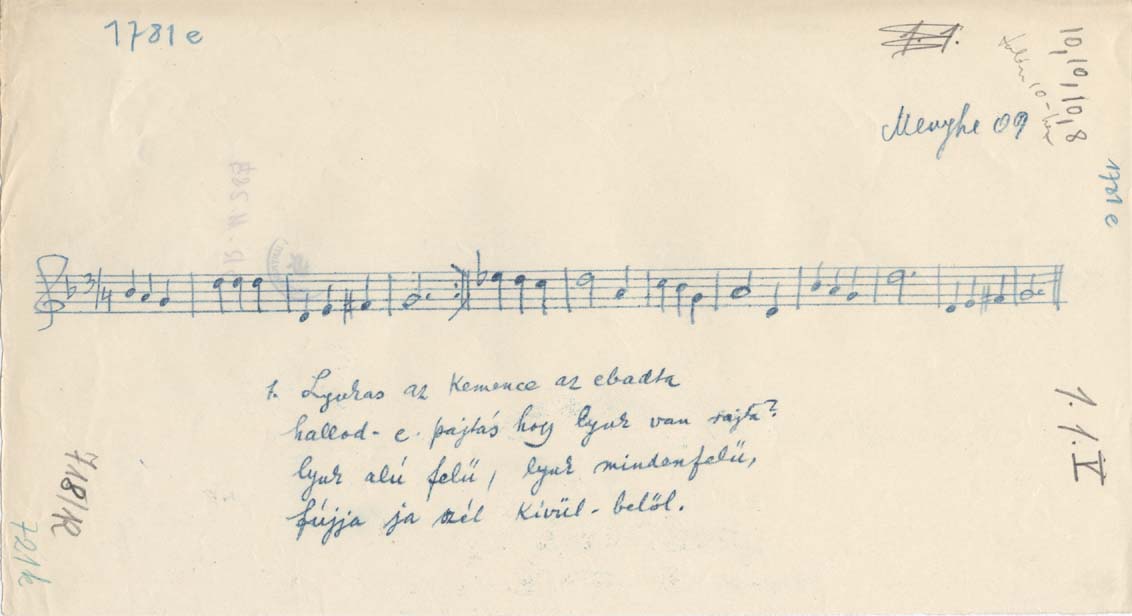 1781 e
10, 10, 10, 8
Menyhe 09
1781 e
3/4
1. Lyukas az kemence az ebadta
hallod-e. pajtás hogy lyuk van rajta?
lyuk alú felű, lyuk mindenfelű,
fújja ja szél kívül-belől.
1.1.V
718/k
721k